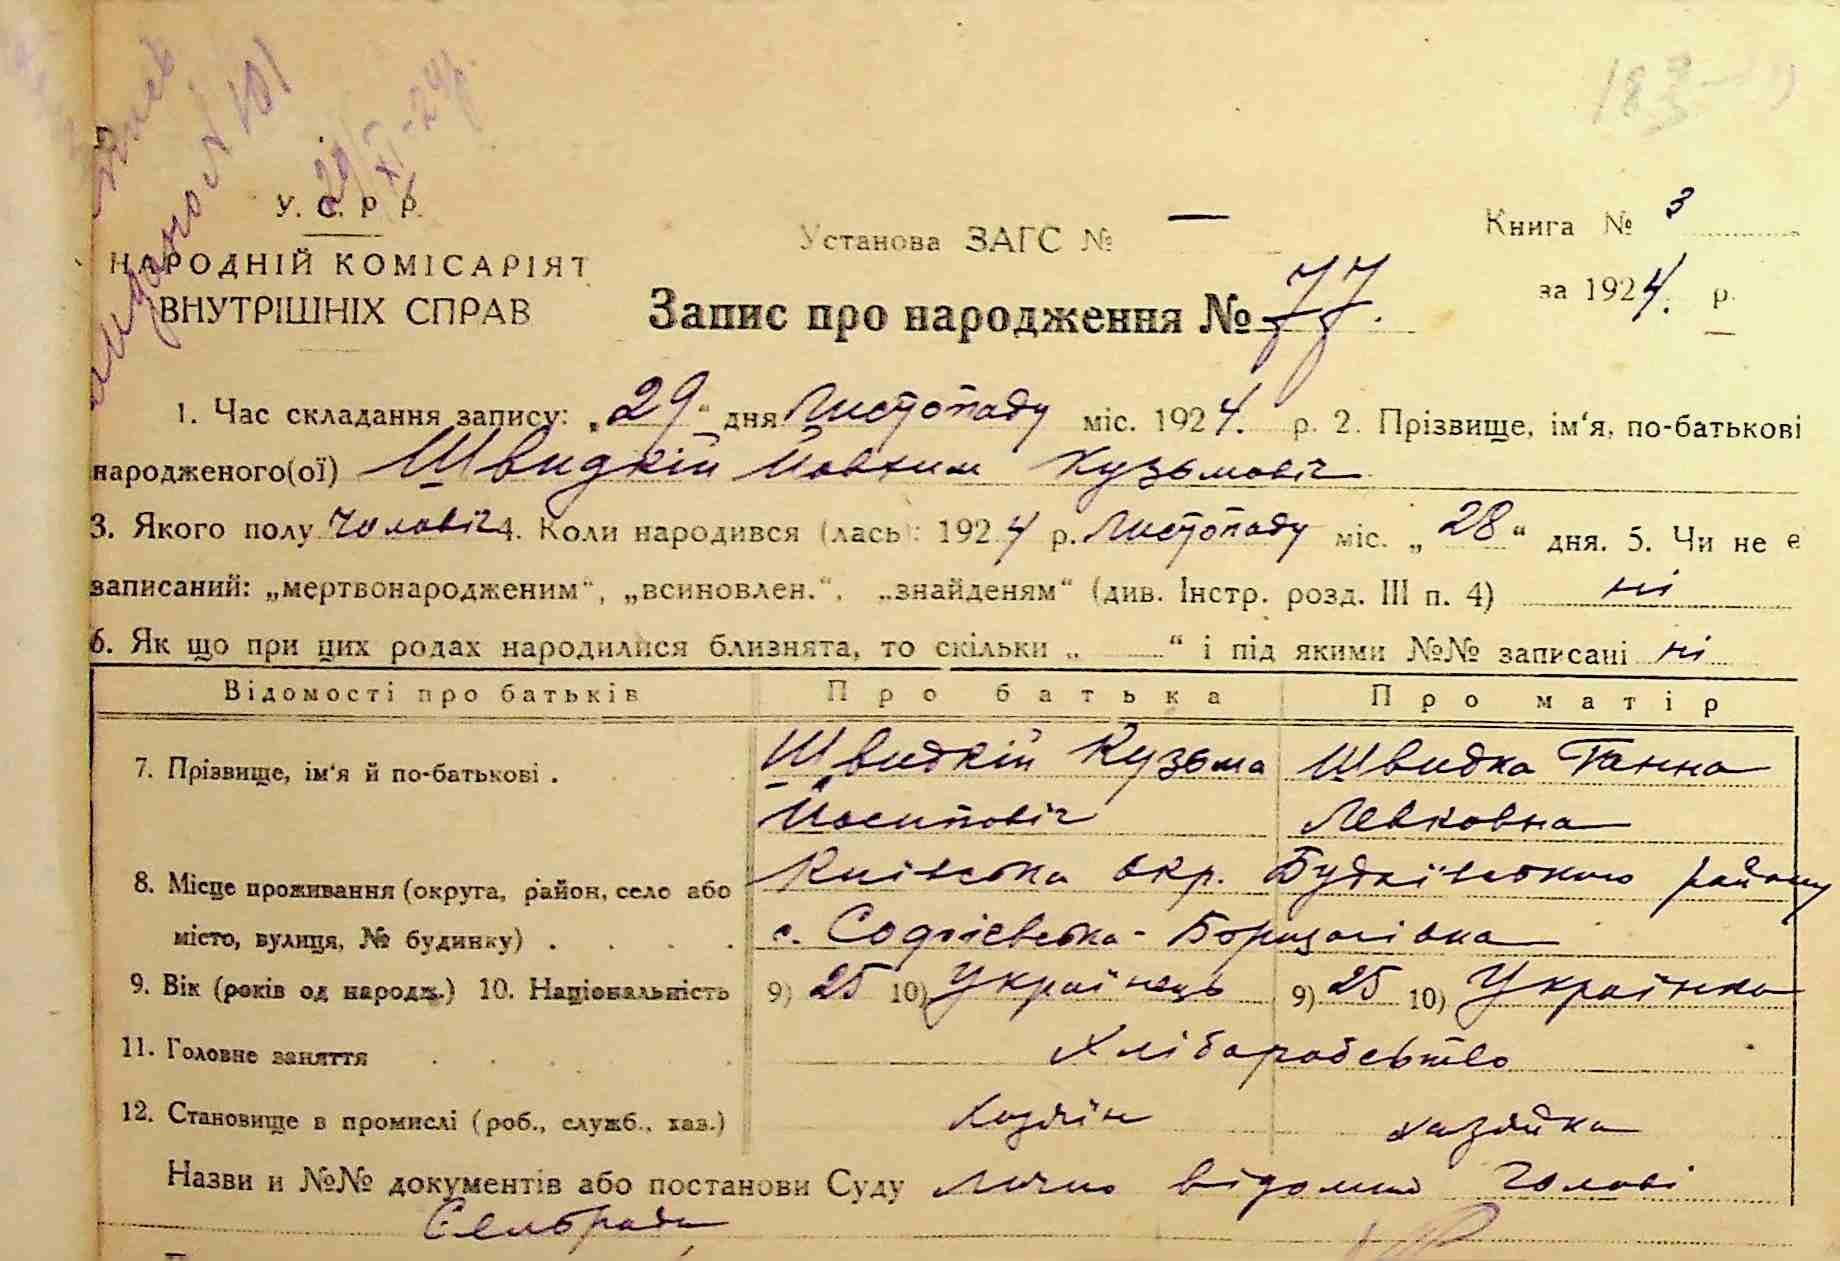 29/XI-24р.
У. С. Р. Р.
НАРОДНІЙ КОМІСАРІЯТ
ВНУТРІШНІХ СПРАВ
Установа ЗАГС № —
Книга № 3
за 1924. р.
Запис про народження № 77.
1. Час складання запису: „29“ дня Листопаду міс. 1924. р. 2. Прізвище, ім‘я, по-батькові
народженого(ої) Швидкій Йовхим Кузьмовіч
3. Якого полу чоловіч 4. Коли народився (лась): 1924 р. Листопаду міс. „28“ дня. 5. Чи не є
записаний: „мертвонародженим“, „всиновлен.“, „знайденям“ (див. Інстр. розд. III п. 4) ні
6. Як що при цих родах народилися близнята, то скільки „ “ і під якими №№ записані ні
Відомості про батьків Про батька Про матір
7. Прізвище, ім‘я й по-батькові . Швидкій Кузьма Швидка Ганна
Йосиповіч Левковна
8. Місце проживання (округа, район, село або Київська окр. Будаївського району
місто, вулиця, № будинку) . . . . с. Софієвська-Борщагівка
9. Вік (років од народж.) 10. Національність 9) 25 10) Українець 9) 25 10) Українка
11. Головне заняття Хліборобство
12. Становище в промислі (роб., служб., хаз.) Хозяін хазяйка
Назви и №№ документів або постанови Суду лично відомий голові
Сельради